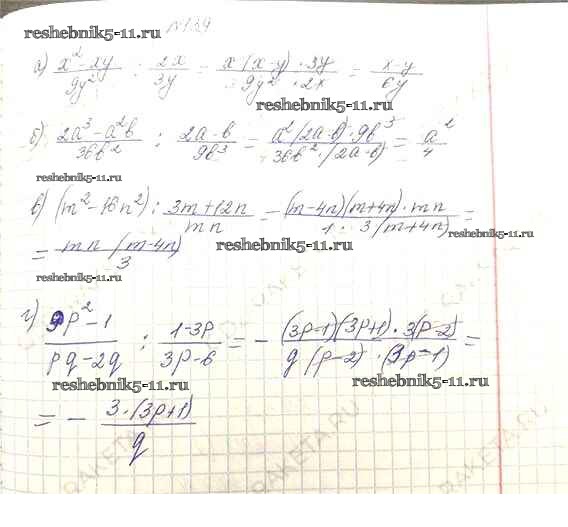 reshebnik5-11.ru
№139
reshebnik5-11.ru
а) (x² - xy)/(9y²) : (2x)/(3y) = (x · (x - y) · 3y)/(9y² · 2x) = (x - y)/(6y)
reshebnik5-11.ru
б) (2a³ - a²b)/(36b²) : (2a - b)/(9b³) = (a² (2a - b) · 9b³)/(36b² · (2a - b)) = a²/4
reshebnik5-11.ru
в) (m² - 16n²) : (3m + 12n)/(mn) = ((m - 4n)(m + 4n) · mn)/(1 · 3(m + 4n)) =
reshebnik5-11.ru
= (mn (m - 4n))/3
reshebnik5-11.ru
reshebnik5-11.ru
г) (9p² - 1)/(pq - 2q) : (1 - 3p)/(3p - 6) = - ((3p - 1)(3p + 1) · 3(p - 2))/(q (p - 2) · (3p - 1)) =
reshebnik5-11.ru
reshebnik5-11.ru
= - (3 · (3p + 1))/q
RAKETA.RU
RAKETA.RU